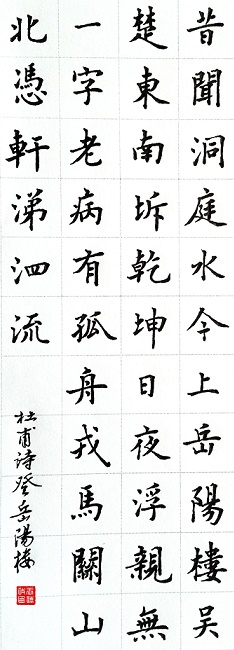 昔聞洞庭水今上岳陽樓吳
楚東南坼乾坤日夜浮親無
一字老病有孤舟戎馬關山
北憑軒涕泗流
杜甫詩登岳陽樓